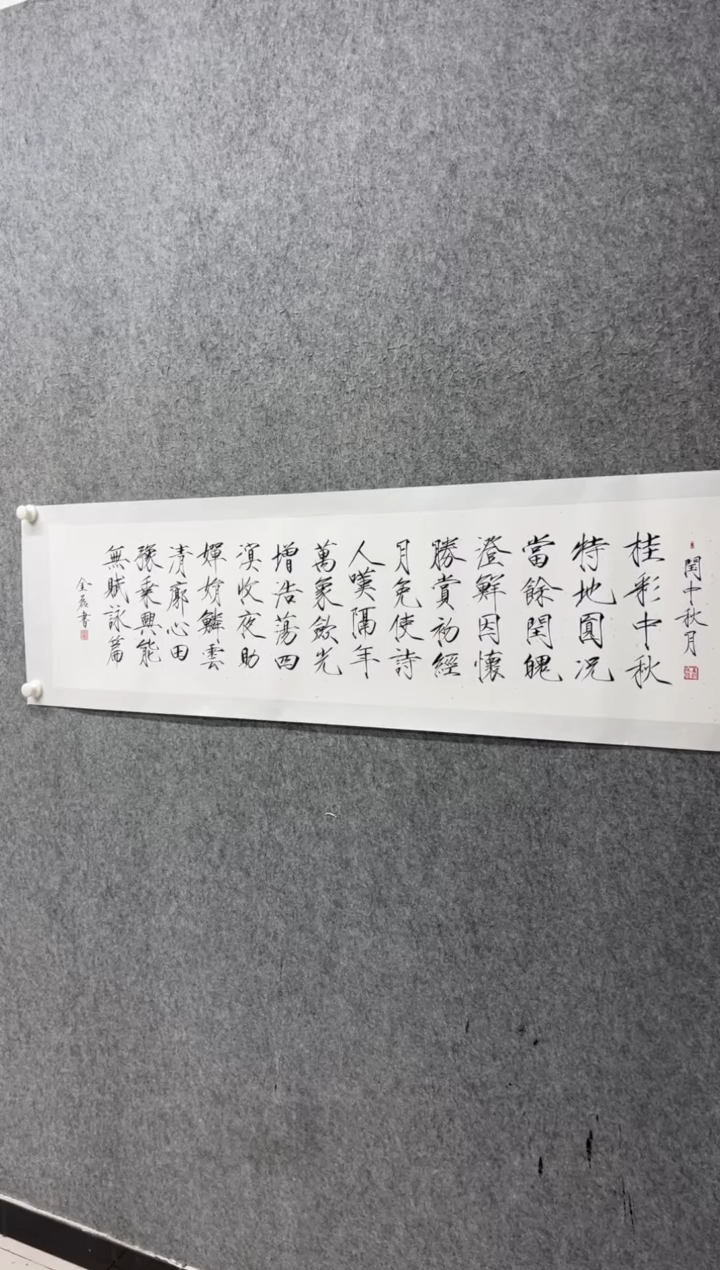 閏中秋月
桂彩中秋
特地圓况
當餘閏魄
澄鮮因懷
勝賞初經
月免使詩
人嘆隔年
萬象斂光
增浩蕩四
溟收夜助
嬋娟鱗雲
清廓心田
豫乘興能
無賦詠篇
書